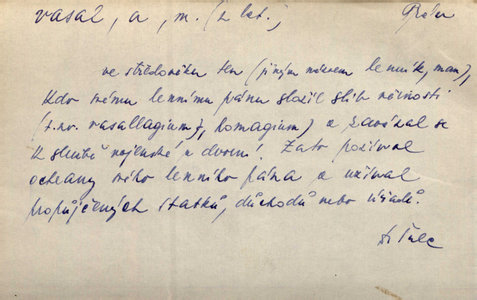 vasal, a, m. (z lat.) Práv
ve středověku ten (jiným názvem leník, man),
kdo svému lennímu pánu složil slib věrnosti
(t.zv. vasallagium, homagium) a zavázal se
k službě vojenské n. dvorní. Zato požíval
ochrany svého lenního pána a užíval
propůjčených statků, důchodů nebo úřadů.